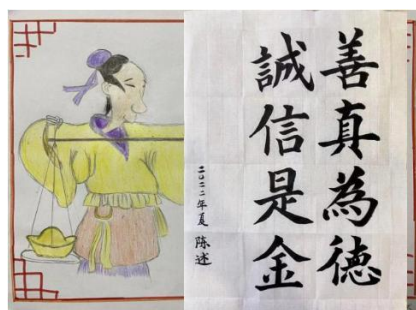 善真為德
誠信是金
二〇二二年夏 陈述